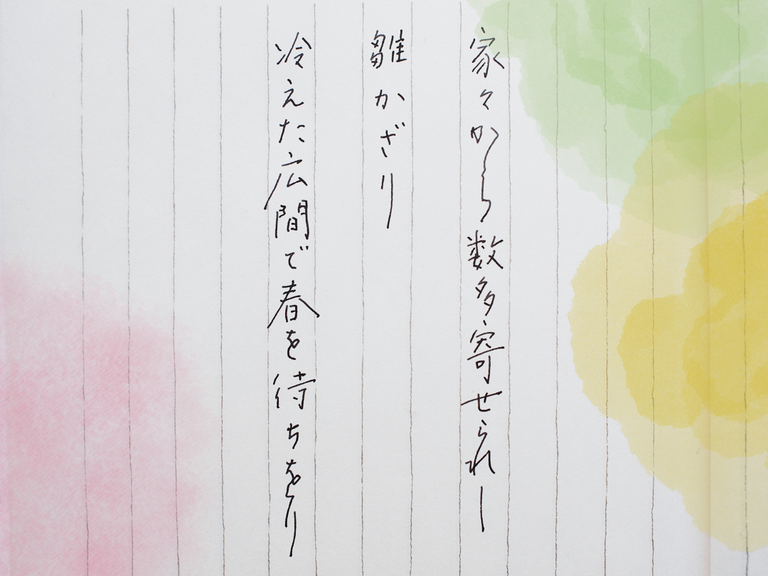 家々から数多寄せられし
雛かざり
冷えた広間で春を待ちをり